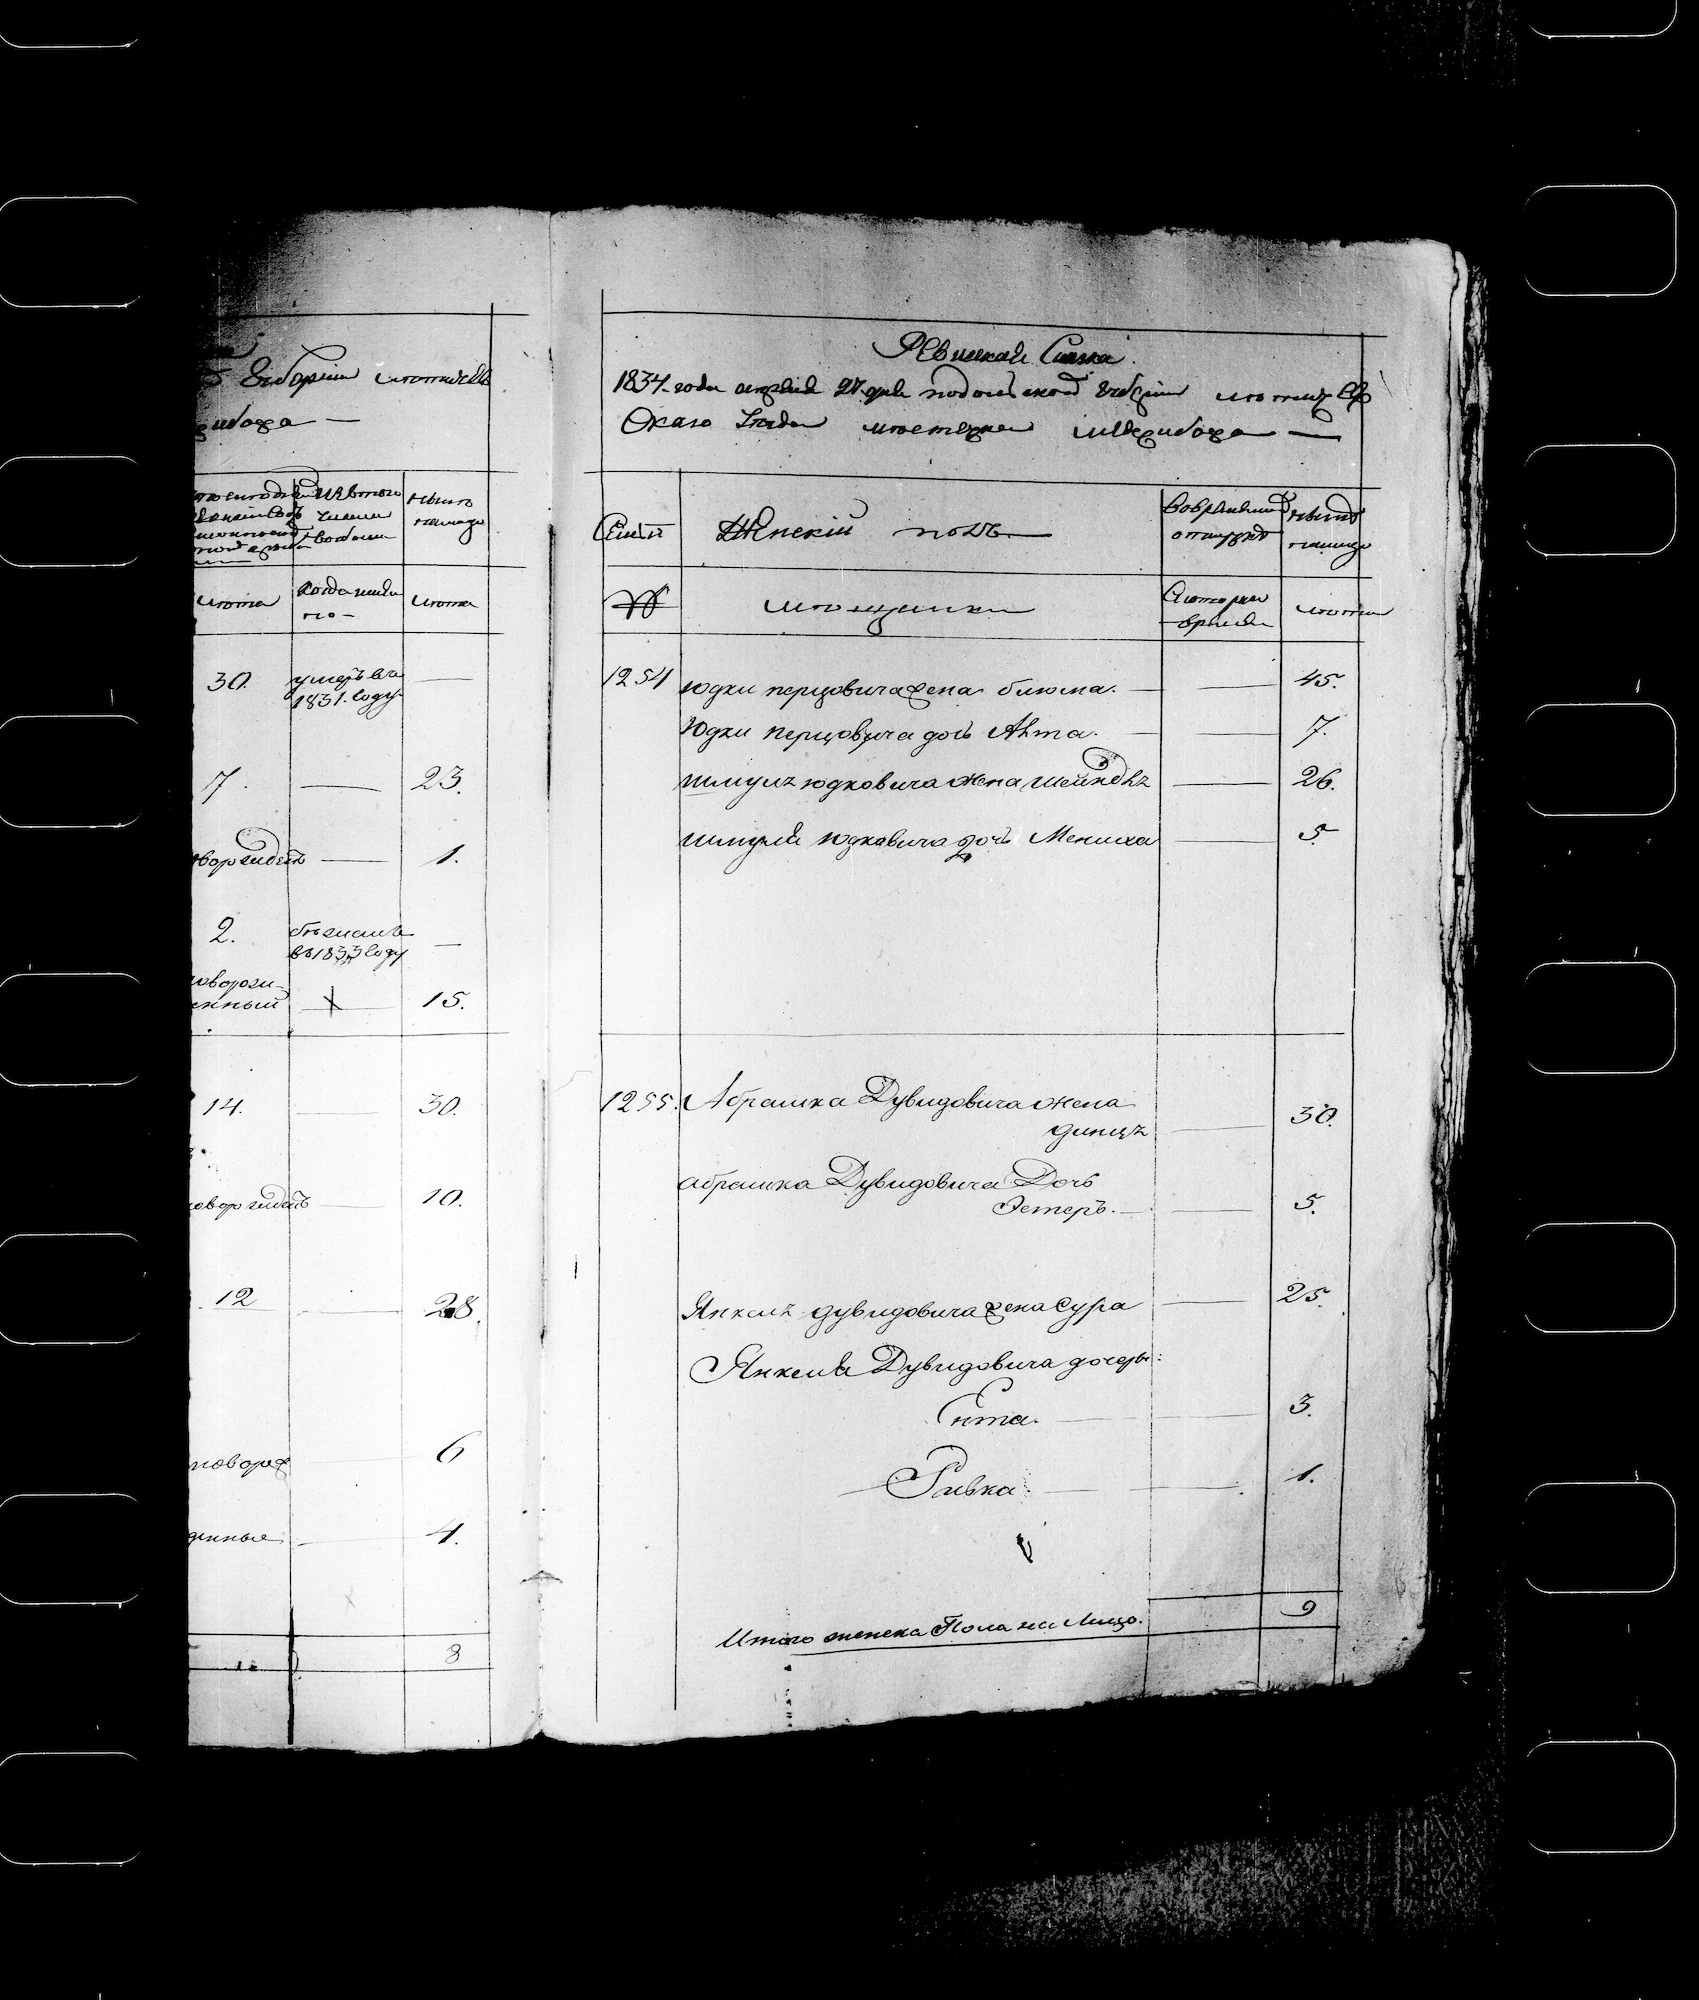 губернiи
жибожа —
изъ того
числа
выбыли
нынѣ
налицо
лѣта
когда имян
но —
лѣта
30.
умеръ въ
1831. году
—
7.
23.
новорожденъ
1.
2.
въ 1833 году
—
новорож-
денный
15.
14.
30.
новорожденъ
10.
12
28.
новорож
6
денные
4.
8
Ревизская Сказка.
1834. года апреля 27 дня подольской губернiи
скаго уѣзда местечка межибожа —
Семьи
Женскiй полъ
Во временной
отлучкѣ
нынѣ
налицо
№
мещанки
С котораго
времени
лѣта
1254
юдки перцовича жена блюма.
45.
Юдки перцовича дочь
7.
шмуля юдковича жена шейндля
26.
шмуля юдковича дочь Мениха
5
1255.
Абрашка Дувидовича жена
30.
абрашка Дувидовича Дочь
Эстеръ.
5.
Янкеля дувидовича жена Сура
25.
Янкеля Дувидовича дочери:
Ента.
3.
Ривка
1.
Итого женска Пола на Лицо.
9